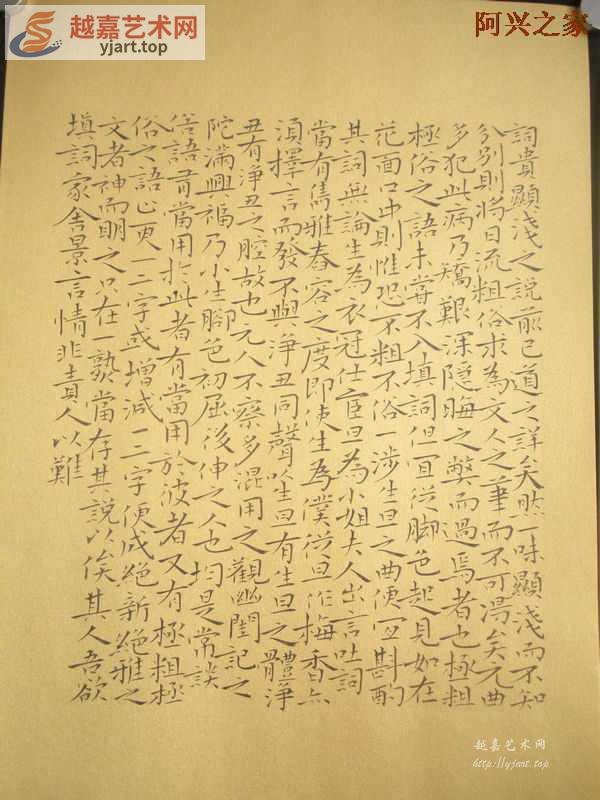 越嘉艺术网
yjart.top
阿兴之家
詞貴顯淺之說前已道之詳矣然一味顯淺而不知
分別則將日流粗俗求為文人之筆而不可得矣元曲
多犯此病乃矯艱深隱晦之弊而過焉者也極粗
極俗之語未嘗不入填詞但宜從脚色起見如在
花面口中則惟恐不粗不俗一涉生旦之曲便宜斟酌
其詞無論生為衣冠仕宦旦為小姐夫人出言吐詞
當有雋雅舂容之度即使生為僕從旦作梅香亦
須擇言而發不與淨丑同聲以生旦有生旦之體淨
丑有淨丑之腔故也元人不察多混用之觀幽閨記之
陀滿興福乃小生腳色初屈後伸之人也均是常談
俗語有當用於此者有當用於彼者又有極粗極
俗之語止更一二字或增減一二字便成絕新絕雅之
文者神而明之只在一熟當存其說以俟其人吾欲
填詞家舍景言情非責人以難
越嘉艺术网
http://yjart.top